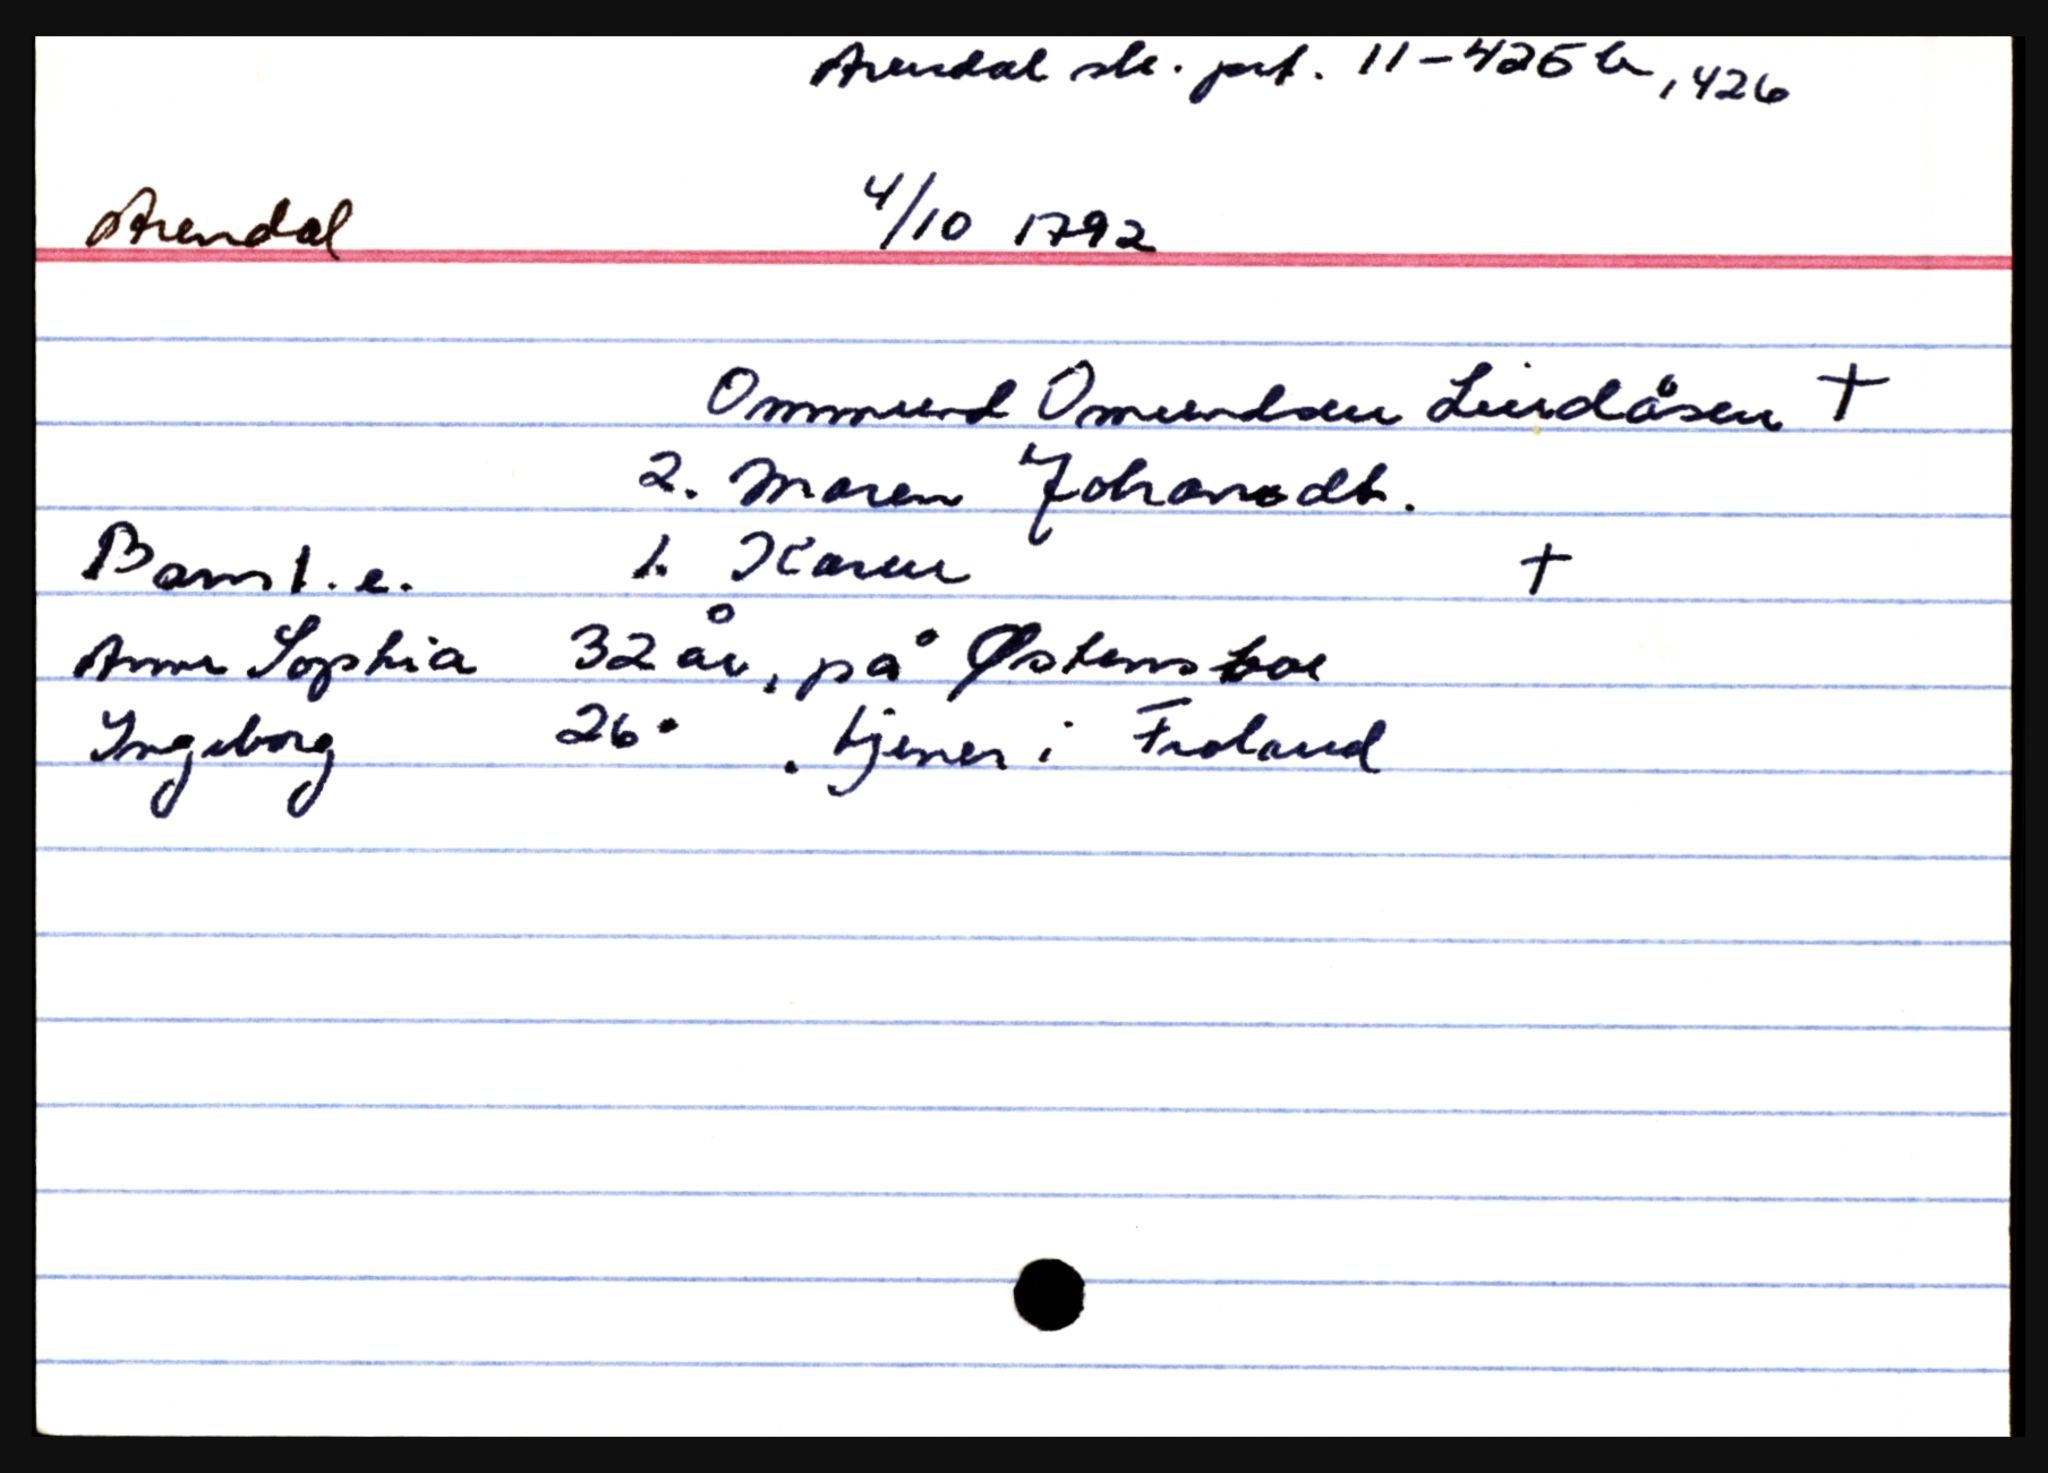 Arendal sk. prt. 11-425b, 426
Arendal 4/10 1792
Ommund Omundsen Lindåsen †
2. Maren Johansdt.
Barn 1. e. 1. Karen †
Anne Sophia 32 år, på Østensboe
Ingeborg 26 " . tjener i Froland